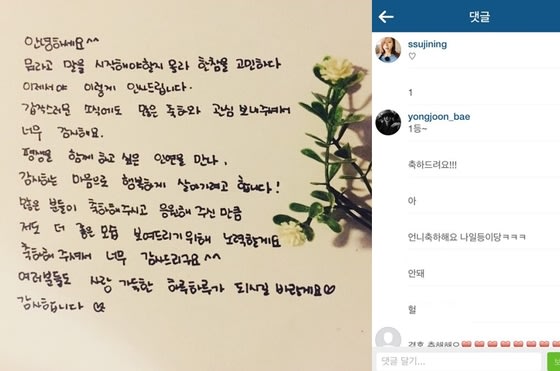 안녕하세요^^
뭐라고 말을 시작해야할지 몰라 한참을 고민하다
이제서야 이렇게 인사드립니다.
갑작스러운 소식에도 많은 축하와 관심 보내주셔서
너무 감사해요.
평생을 함께 하고 싶은 인연을 만나,
감사하는 마음으로 행복하게 살아가려고 합니다!
많은 분들이 축하해주시고 응원해 주신 만큼
저도 더 좋은 모습 보여드리기 위해 노력할게요
축하해 주셔서 너무 감사드리구요^^
여러분들도 사랑 가득한 하루하루가 되시길 바랄게요♡
감사합니다 ♡
댓글
ssujining
♡
1
yongjoon_bae
1등~
축하드려요!!!
아
언니축하해요 나일등이당ㅋㅋㅋ
안돼
헐
결혼 축해해요
댓글 달기...